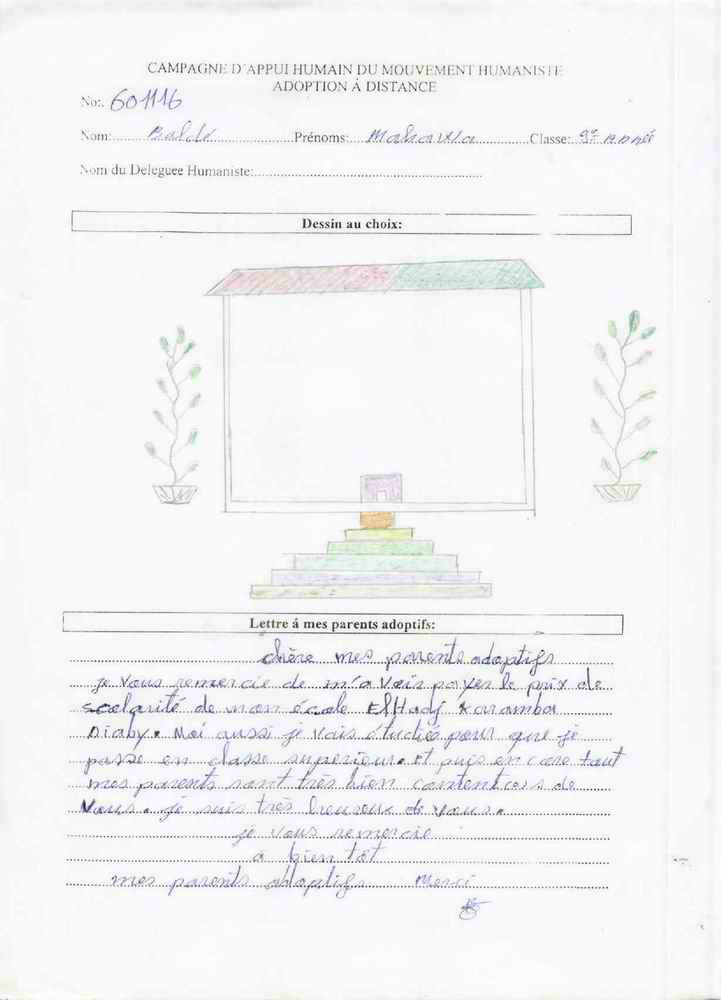 CAMPAGNE D'APPUI HUMAIN DU MOUVEMENT HUMANISTE
ADOPTION Á DISTANCE
No:. 601116
Nom: Baldé Prénoms: Classe: 9e année
Nom du Deleguee Humaniste:
Dessin au choix:
Lettre á mes parents adoptifs:
chère mes parents adoptifs
je vous remercie de m'a voir payer le prix de
scolarité de mon école ElHadj Karamba
Diaby. Moi aussi je vais étudiés pour que je
passe en classe superieur. et puis en core tout
mes parents sont très bien content de
vous. je suis très heureux de vous.
je vous remercie
a bien tôt
mes parents adoptifs Merci